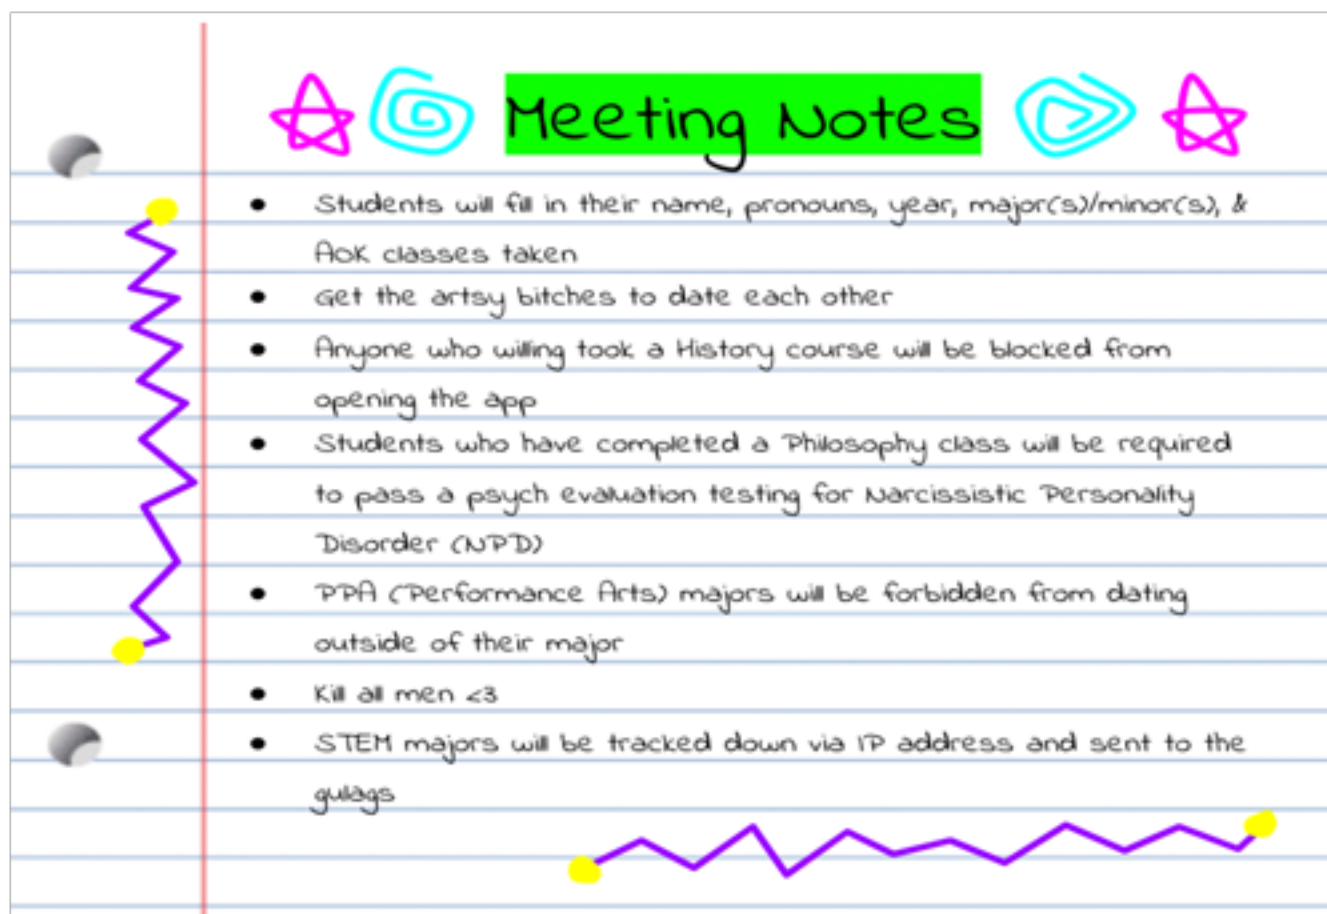 Meeting Notes
• Students will fill in their name, pronouns, year, major(s)/minor(s), &
AOK classes taken
• Get the artsy bitches to date each other
• Anyone who willing took a History course will be blocked from
opening the app
• Students who have completed a Philosophy class will be required
to pass a psych evaluation testing for Narcissistic Personality
Disorder (NPD)
• PPA (Performance Arts) majors will be forbidden from dating
outside of their major
• Kill all men <3
• STEM majors will be tracked down via IP address and sent to the
gulags